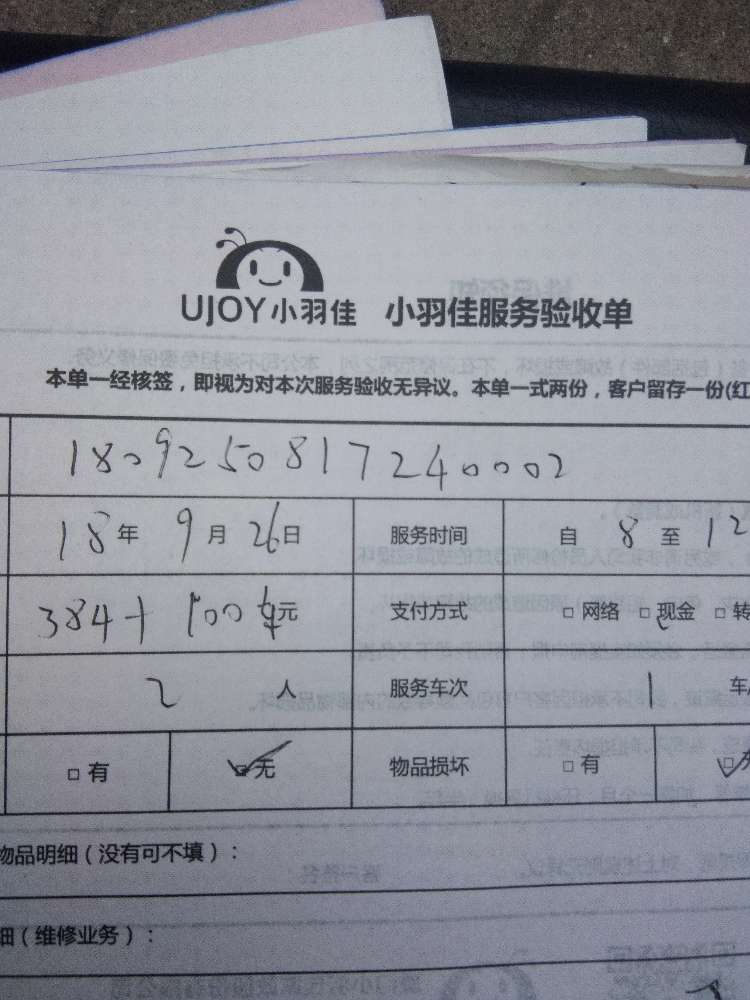 UJOY小羽佳 小羽佳服务验收单
本单一经核签，即视为对本次服务验收无异议。本单一式两份，客户留存一份(红
1809250817240002
18年 9月 26日 服务时间 自 8 至 12
384+100 元 支付方式 □ 网络 □ 现金 □ 转
2 人 服务车次 1 车
□ 有 □ 无 物品损坏 □ 有 □
物品明细（没有可不填）：
细（维修业务）：